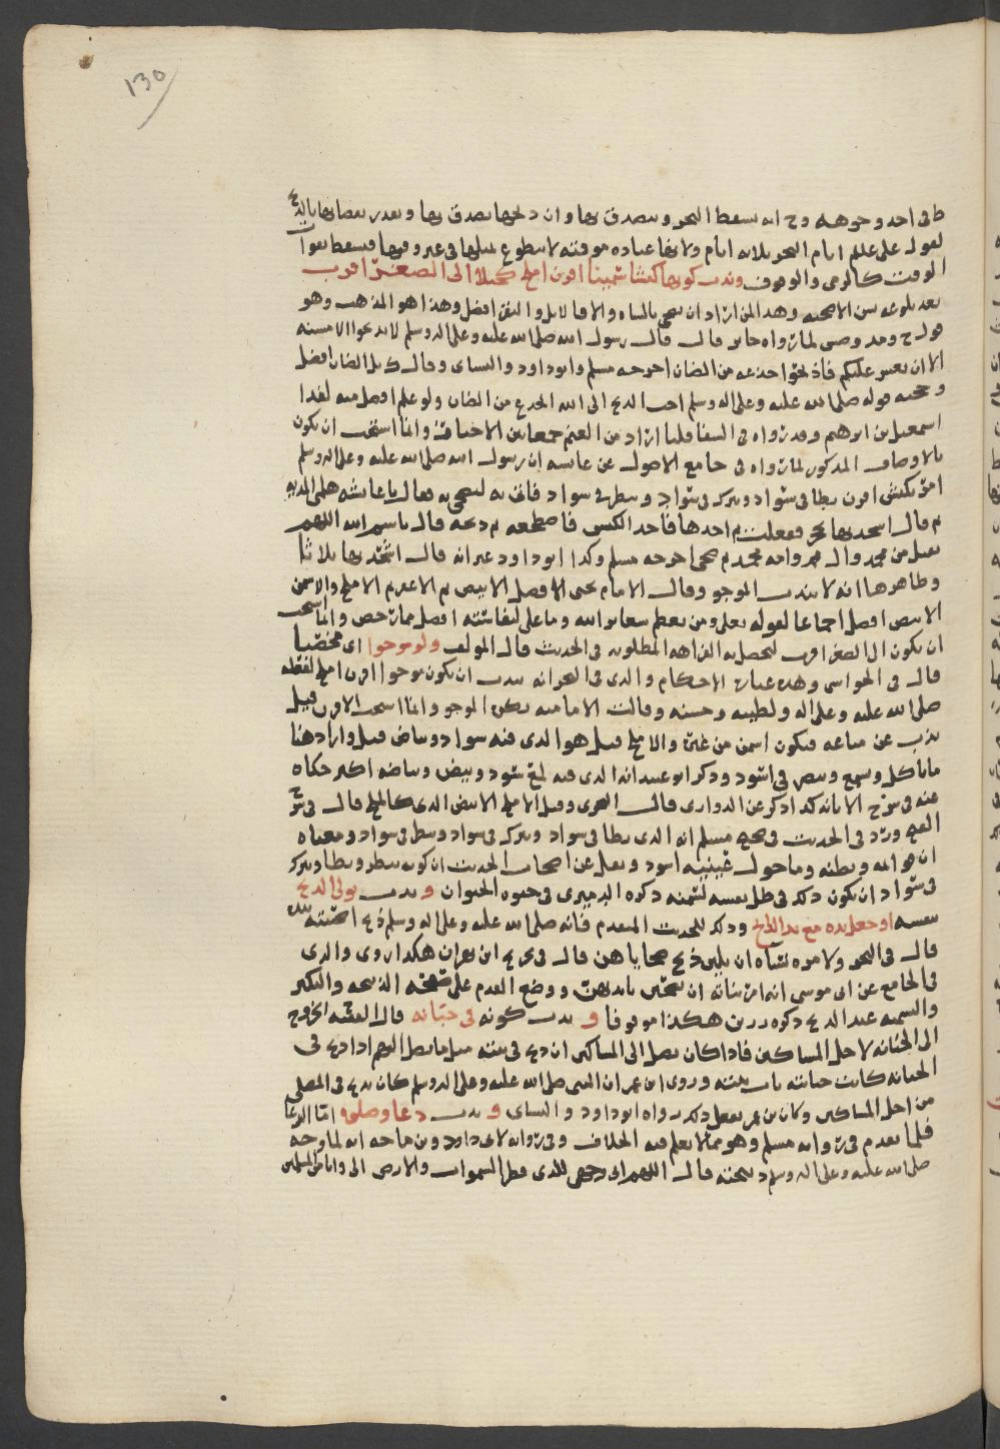 130
في احد وجوهه وح انه يسقط النحر ويتصدق بها وان ذبحها تصدق بها وبقدر نقصانها بالذبح
لقوله على علم ايام النحر ثلاثه ايام ولانها عباده موقته لا يتطوع بمثلها في غير وقتها فيسقط بفوات
الوقت كالرمي والوقوف وندب كونها كبشا سمينا اقرن املح كحيلا الى الصغر اقرب
بعد بلوغه سن الاضحيه وهذا لمن اراد ان يضحي بالشاه والا فالابل والبقر افضل وهذا هو المذهب وهو
قول ح لما رواه جابر قال قال رسول الله صلى الله عليه وعلى اله وسلم لا تذبحوا الا مسنه
الا ان يعسر عليكم فاذبحوا جذعه من الضان اخرجه مسلم وابو داود والنساي وقال ك بل الضان افضل
وحجته قوله صلى الله عليه وعلى اله وسلم احب الذبح الى الله الجذع من الضان ولو علم افضل منه لفدا
اسمعيل بن ابرهيم وقد رواه في الشفا قلنا اراد من الغنم جمعا بين الاخبار وانما استحب ان يكون
بالاوصاف المذكوره لما رواه في جامع الاصول عن عايشه ان رسول الله صلى الله عليه وعلى اله وسلم
امر بكبش اقرن يطا في سواد ويبرك في سواد وينظر في سواد فاتى به ليضحي به فقال يا عايشه هلمي المديه
ثم قال اشحذيها بحجر ففعلت ثم اخذها فاخذ الكبش فاضجعه ثم ذبحه قال باسم الله اللهم
تقبل من محمد وال محمد وامه محمد ثم ضحى اخرجه مسلم وكذا ابو داود غير انه قال اشحذيها ثلاثا
وظاهرها انه لا يندب الموجو وقال الامام يحيى الافضل الابيض ثم الاعفر ثم الاملح والاسمن
الابيض افضل اجماعا لقوله تعالى ومن يعظم شعاير الله وما على لنفاسته افضل مما رخص وانما استحب
ان يكون الى الصغر اقرب لتحصل به الفراهه المطلوبه في الحديث قال المولف ولو موجوا اي مخصيا
قال في الحواشي وهذه عباره الاحكام والذي في البحر انه يندب ان يكون موجوا اقرن املح لفعله
صلى الله عليه وعلى اله ولطيبه وحسنه وقالت الاماميه يكره الموجو وانما استحب الاقرن قيل
يذب عن متاعه فيكون اسمن من غيره والاملح قيل هو الذي فيه سواد وبياض قيل واراد هنا
ما ياكل ويسمع ويبصر في اسود وذكر ابو عبيد انه الذي فيه لمع سود وبيض وبياضه اكثر حكاه
عنه في شرح الابانه كذا ذكر عن الدواري قال وقيل الاملح الابيض الذي كالملح قال في شرح
الفتح ورد في الحديث في صحيح مسلم انه الذي يطا في سواد ويبرك في سواد وينظر في سواد ومعناه
ان قوايمه وبطنه وما حول عينيه اسود ونقل عن اصحاب الحديث ان كونه ينظر ويطا ويبرك
في سواد ان يكون ذلك في ظل نفسه لسمنه ذكره الدميري في حيوه الحيوان وندب تولي الذبح
بنفسه او جعل يده مع يد الذابح وذكر للحديث المتقدم فانه صلى الله عليه وعلى اله وسلم ذبح اضحيته بيده
قال في البحر ولامره نساه ان يلين ذبح ضحاياهن قال في ابن بهران هكذا روي والذي
في الجامع عن ابي موسى انه امر بناته ان يضحين بايديهن ووضع القدم على صفحه الذبيحه والتكبير
والتسميه عند الذبح ذكره رزين هكذا موقوفا وندب كونه في جبانه قال الفقيه الخروج
الى الجبانه لاجل المساكين فاذا كان يصل الى المساكين ان ذبح في بيته مثل ما يصل اليهم اذا ذبح في
الجبانه كانت جبانته باب بيته وروى ابن عمر ان النبي صلى الله عليه وعلى اله وسلم كان يذبح في المصلى
من اجل المساكين وكان بن عمر يفعل ذلك رواه ابو داود والنساي وندب دعا وصلوه اما الدعا
فلما تقدم في روايه مسلم وهو مما لا يعلم فيه الخلاف وفي روايه لابي داود وبن ماجه انه لما وجه
صلى الله عليه وعلى اله وسلم ذبيحته قال اللهم اني وجهي للذي فطر السموات والارض الى وانا من المسلمين